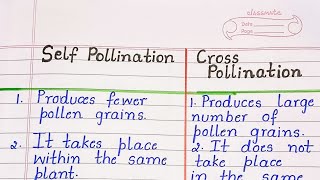 classmate
Date
Page
Self Pollination
Cross
Pollination
1. Produces fewer
pollen grains.
2. It takes place
within the same
plant.
1. Produces large
number of
pollen grains.
2. It does not
take place
in the same